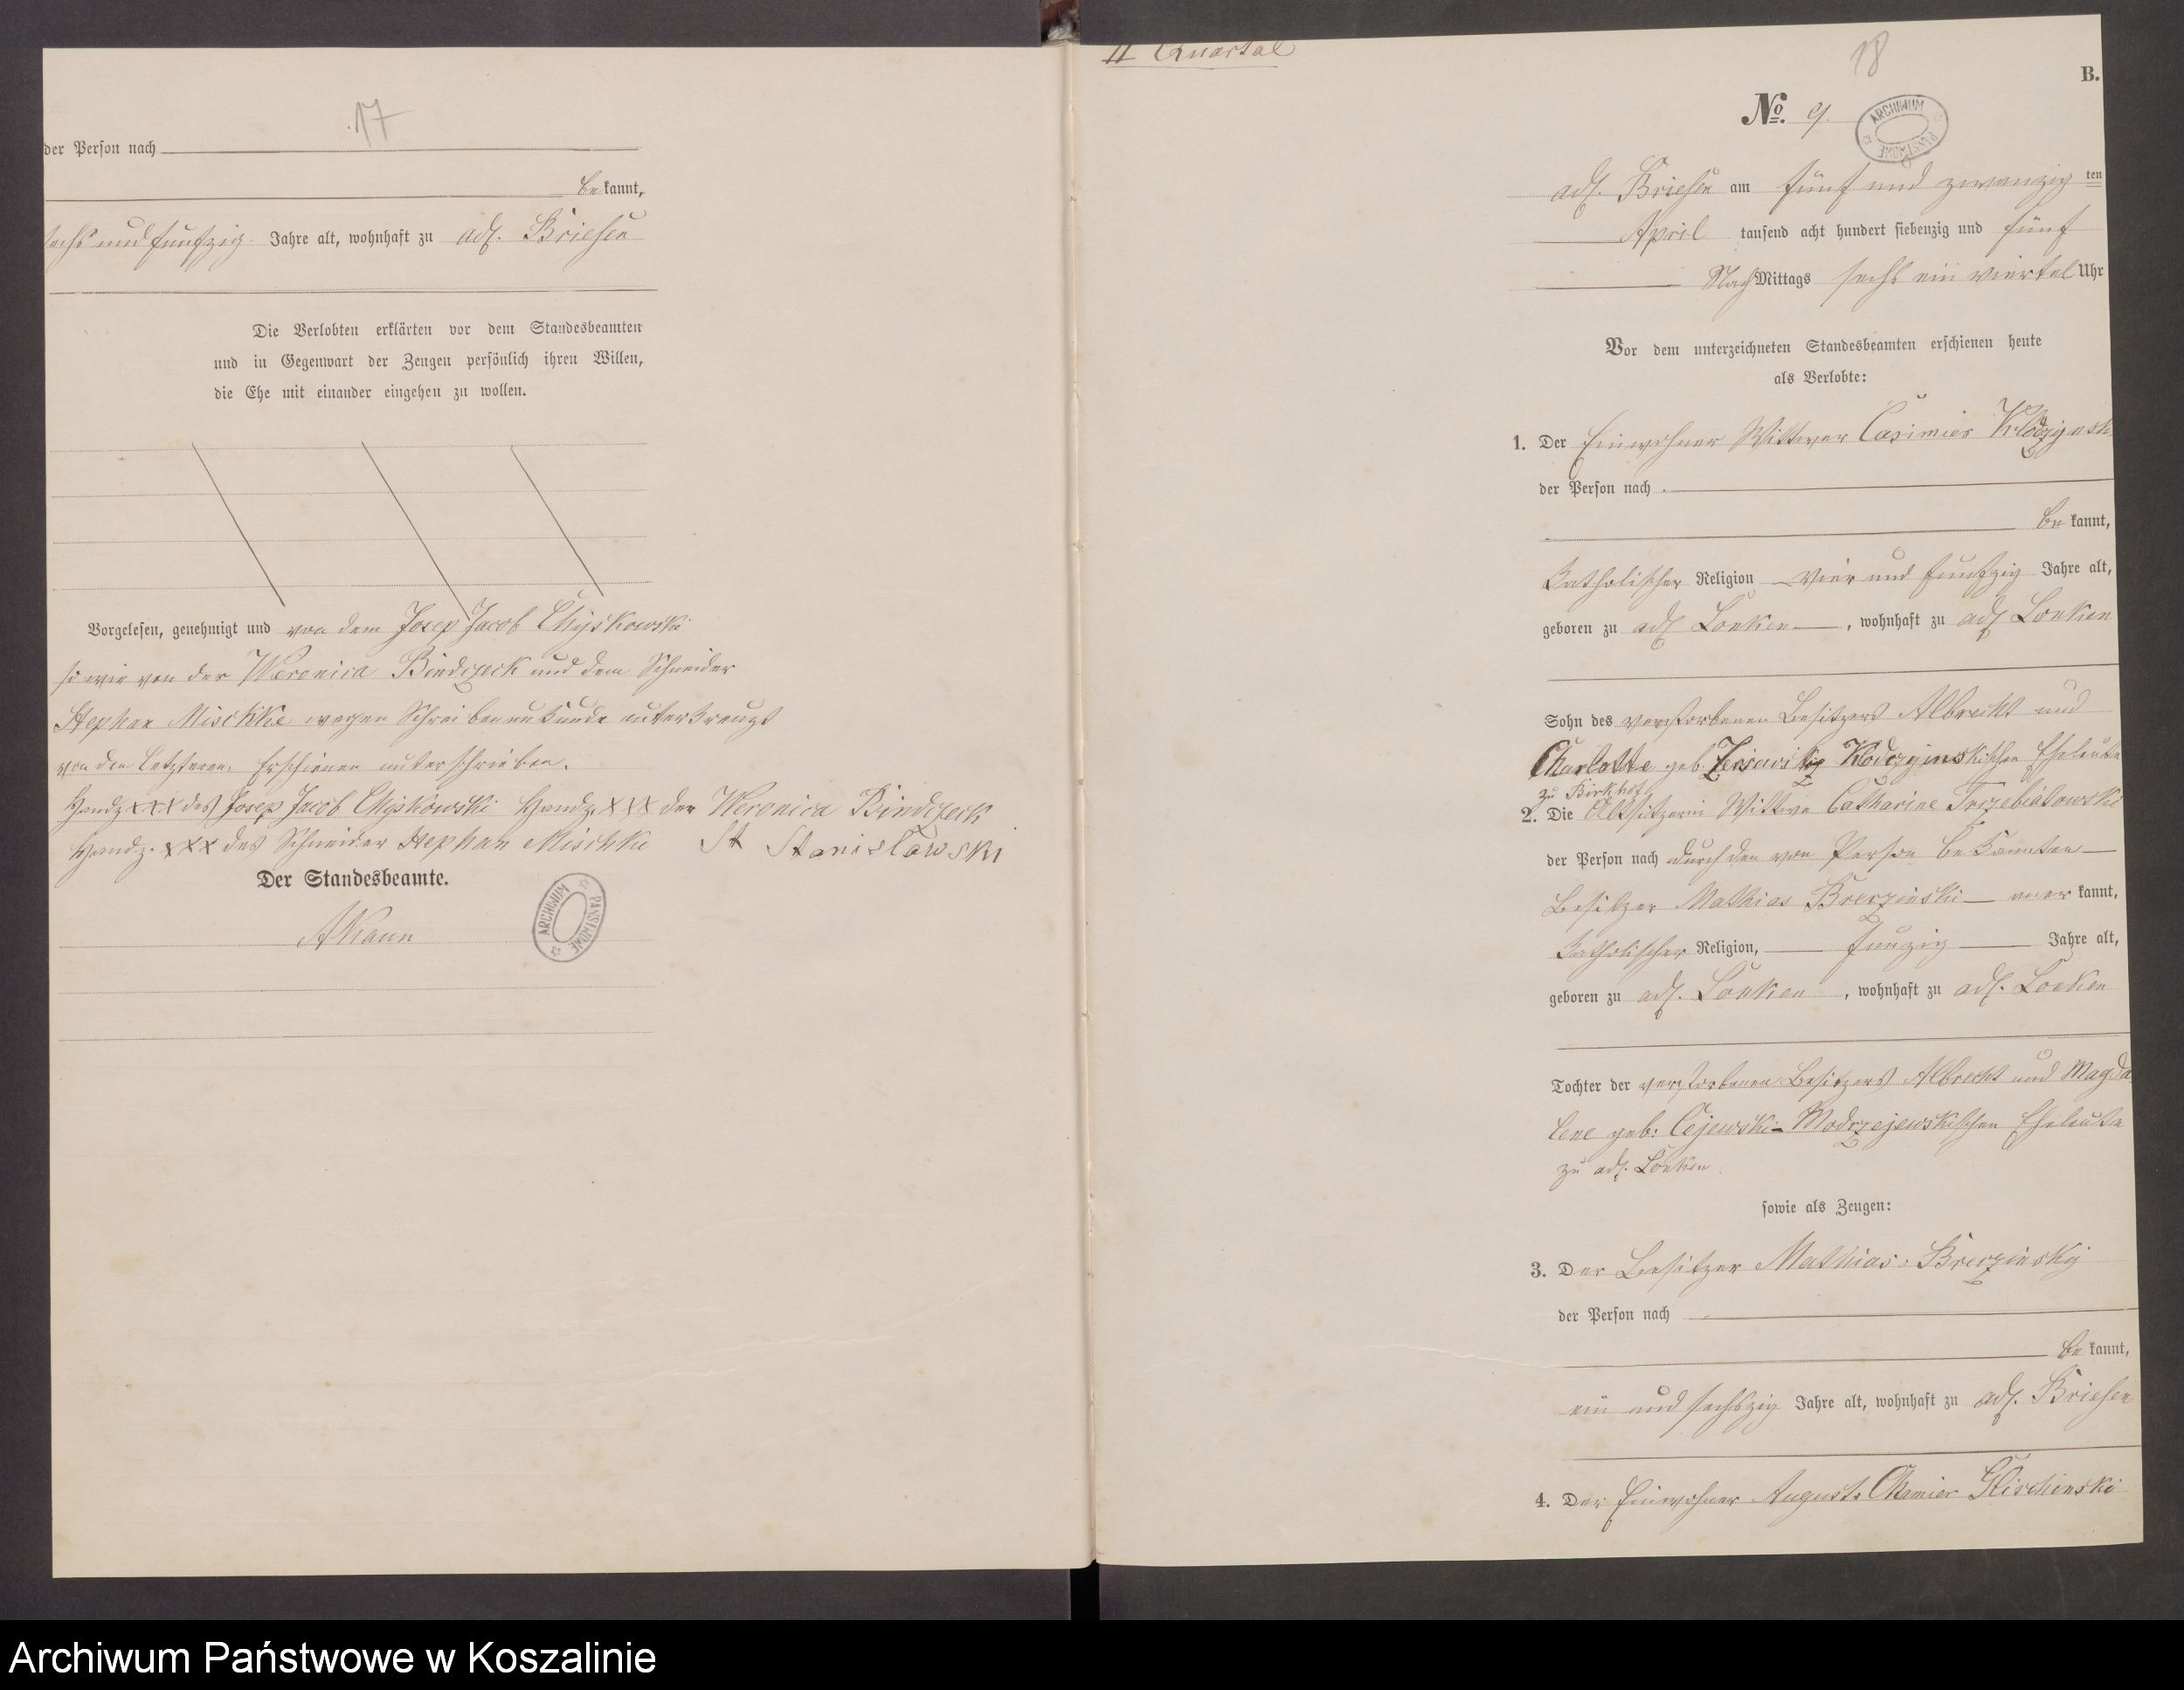 17
der Person nach
bekannt,
sechs und funfzig Jahre alt, wohnhaft zu adl. Briesen
Die Verlobten erklärten vor dem Standesbeamten
und in Gegenwart der Zeugen persönlich ihren Willen,
die Ehe mit einander eingehen zu wollen.
Vorgelesen, genehmigt und von dem Josep Jacob Chyskowski
so wie von der Weronica Bindczeck und dem Schneider
Stephan Mischke wegen Schreibenunkunde unterkreuzt
von den Letzteren Erschienen unterschrieben.
Handz. xxx des Josep Jacob Chyskowski Handz. xxx der Weronica Bindczeck
Handz. xxx des Schneider Stephan Mischke St Stanislawski
Der Standesbeamte.
ARCHIWUM PAŃSTWOWE
II Quartal
18
B.
No. 9.
ARCHIWUM PAŃSTWOWE
adl. Briesen am fünf und zwanzig ten
April tausend acht hundert siebenzig und fünf
Nach Mittags sechs ein viertel Uhr
Vor dem unterzeichneten Standesbeamten erschienen heute
als Verlobte:
1. Der Einwohner Wittwer Casimier
der Person nach
bekannt,
Katholischer Religion vier und funfzig Jahre alt,
geboren zu adl Lonken, wohnhaft zu adl Lonken
Sohn des verstorbenen Besitzers Albrecht und
Charlotte geb. Klodczinskischen Eheleute
zu Birkhof
2. Die Altsitzerin Wittwe Catharine Trzebiatowski
der Person nach durch den von Person bekannten
Besitzer Mathias Brerzinski anerkannt,
Katholischer Religion, funzig Jahre alt,
geboren zu adl. Lonken, wohnhaft zu adl. Lonken
Tochter der verstorbenen Besitzers Albrecht und Magda
lene geb. Cejewski Modrzejewskischen Eheleute
zu adl. Lonken.
sowie als Zeugen:
3. Der Besitzer Mathias Brerzinsky
der Person nach
bekannt,
ein und sechszig Jahre alt, wohnhaft zu adl. Briesen
4. Der Einwohner August Chamier Glischinski
Archiwum Państwowe w Koszalinie